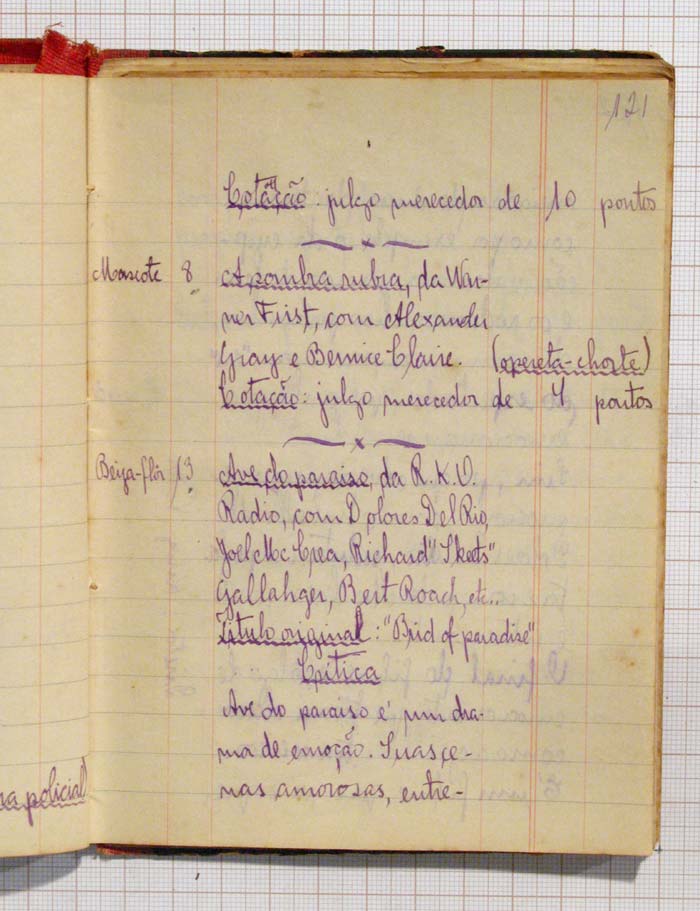 121
Cotação: julgo merecedor de 10 pontos
Mascote 8 A pomba rubra, da War-
ner Frist, com Alexander
Gray e Bernice Claire. (opereta-chorte)
Cotação: julgo merecedor de 4 pontos
Beija-flôr 13 Ave do paraiso, da R.K.O.
Radio, com Dolores Del Rio,
Joel Mc Crea, Richard "Skeets"
Gallahger, Bert Roach, etc..
Titulo original: "Brid of paradise"
Critica
Ave do paraiso é um dra-
ma de emoção. Suas ce-
nas amorosas, entre-
policial)